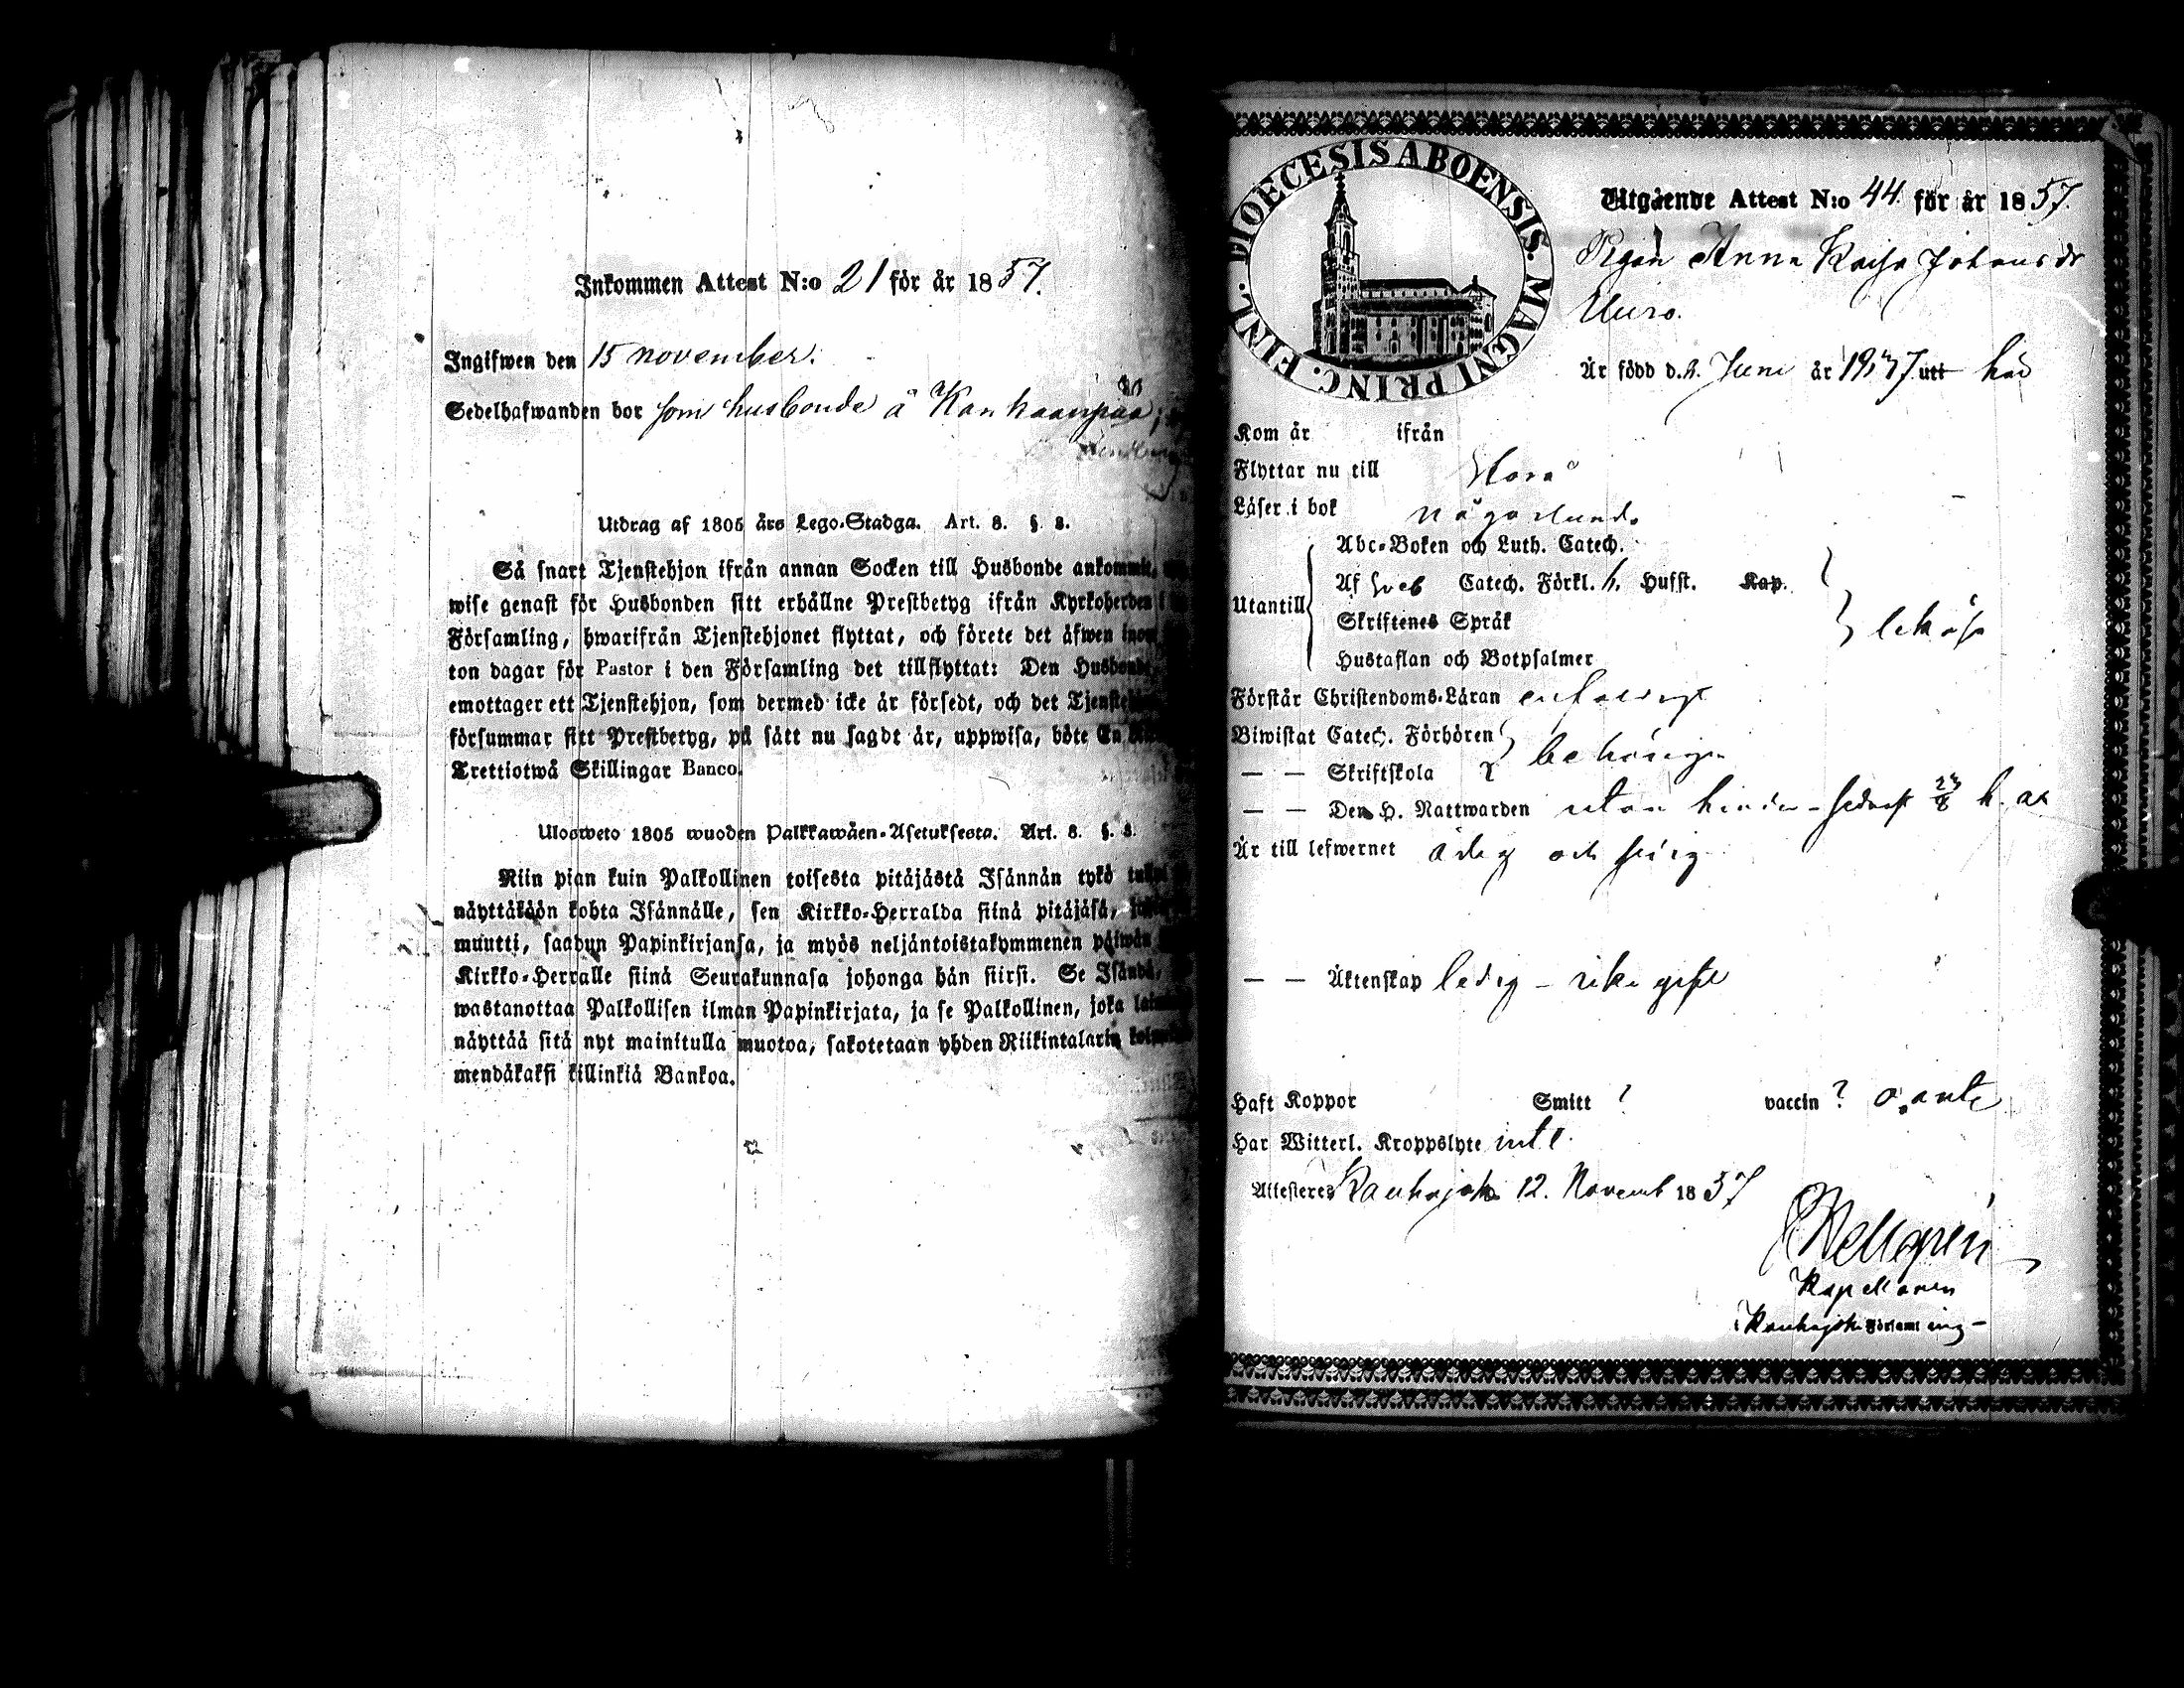 Inkommen Attest N:o 21 för år 1857.
Ingifwen den 15 november.
Sedelhafwanden bor som husbonde å Kanhaanpää
Utdrag af 1805 års Lego-Stadga. Art. 8. §. 8.
Så snart Tjenstehjon ifrån annan Socken till Husbonde ankommit,
wise genast för Husbonden sitt erhållne Prestbetyg ifrån Kyrkoherden i
Församling, hwarifrån Tjenstehjonet flyttat, och förete det äfwen inom
ton dagar för Pastor i den Församling det tillflyttat: Den Husbonde,
emottager ett Tjenstehjon, som dermed icke är försedt, och det Tjenstehjon
försummar sitt Prestbetyg, på sätt nu sagdt är, uppwisa, böte En
Trettiotwå Skillingar Banco.
Ulosweto 1805 wuoden Palkkawäen-Asetuksesta. Art. 8. §. 8.
Niin pian kuin Palkollinen toisesta pitäjästä Isännän tykö
näyttäkään kohta Isännälle, sen Kirkko-Herralda siinä pitäjäsä,
muutti, saadun Papinkirjansa, ja myös neljäntoistakymmenen päiwän
Kirkko-Herralle siinä Seurakunnasa johonga hän siirsi. Se Isändä,
wastanottaa Palkollisen ilman Papinkirjata, ja se Palkollinen, joka
näyttää sitä nyt mainitulla muotoa, sakotetaan yhden Riikintalarin
mendäkaksi killinkiä Bankoa.
DIOECESIS ABOENSIS. MAGNI PRINC. FINL.
Utgående Attest N:o 44. för år 1857.
Pigan Anna Kajsa Johansdr
Uuro.
Är född d. 2. Juni år utt här
Kom år ifrån
Flyttar nu till Storå
Läser i bok någorlunda
Abc-Boken och Luth. Catech.
Utantill
Af Sveb Catech. Förkl. h. Hufst. Kap.
Skriftenes Språk
Hustaflan och Botpsalmer
Förstår Christendoms-Läran enfaldigt
Biwistat Catech. Förhören behörigen
— — Skriftskola
— — Den H. Nattwarden utan hinder - sednast 23/8 h. år
Är till lefwernet ärlig och
— — Äktenskap ledig -
Haft Koppor Smitt ? vaccin ?
Har Witterl. Kroppslyte intet
Attesteres Kauhajoki 12. Novemb 1857
Kapellanen
i Kauhajoki Församling -